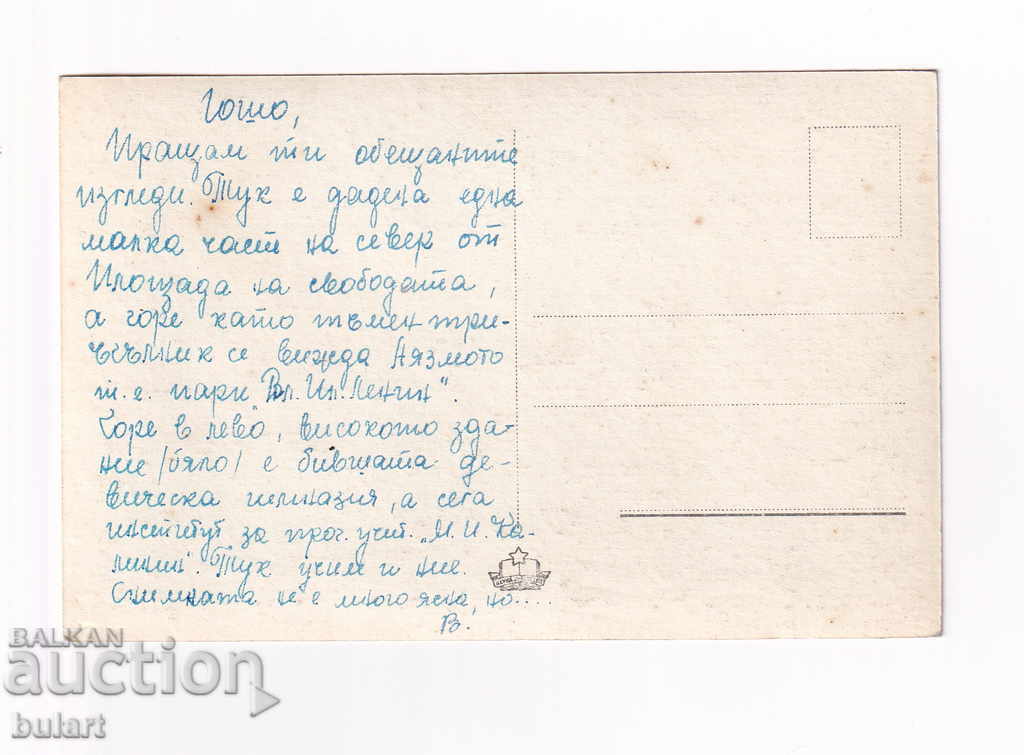 Гошо,
Пращам ти обещаните
изгледи. Тук е дадена една
малка част на север от
Площада на свободата,
а горе като тъмен три-
ъгълник се вижда Аязмото
т. е. парк "Вл. Ил. Ленин".
Горе в лево, високото зда-
ние /бяло/ е бившата де-
вическа гимназия, а сега
институт за прог. учит. "М. И. Ка-
линин". Тук учим и ние.
Снимката не е много ясна, но....
В.
BALKAN
auction
bulart